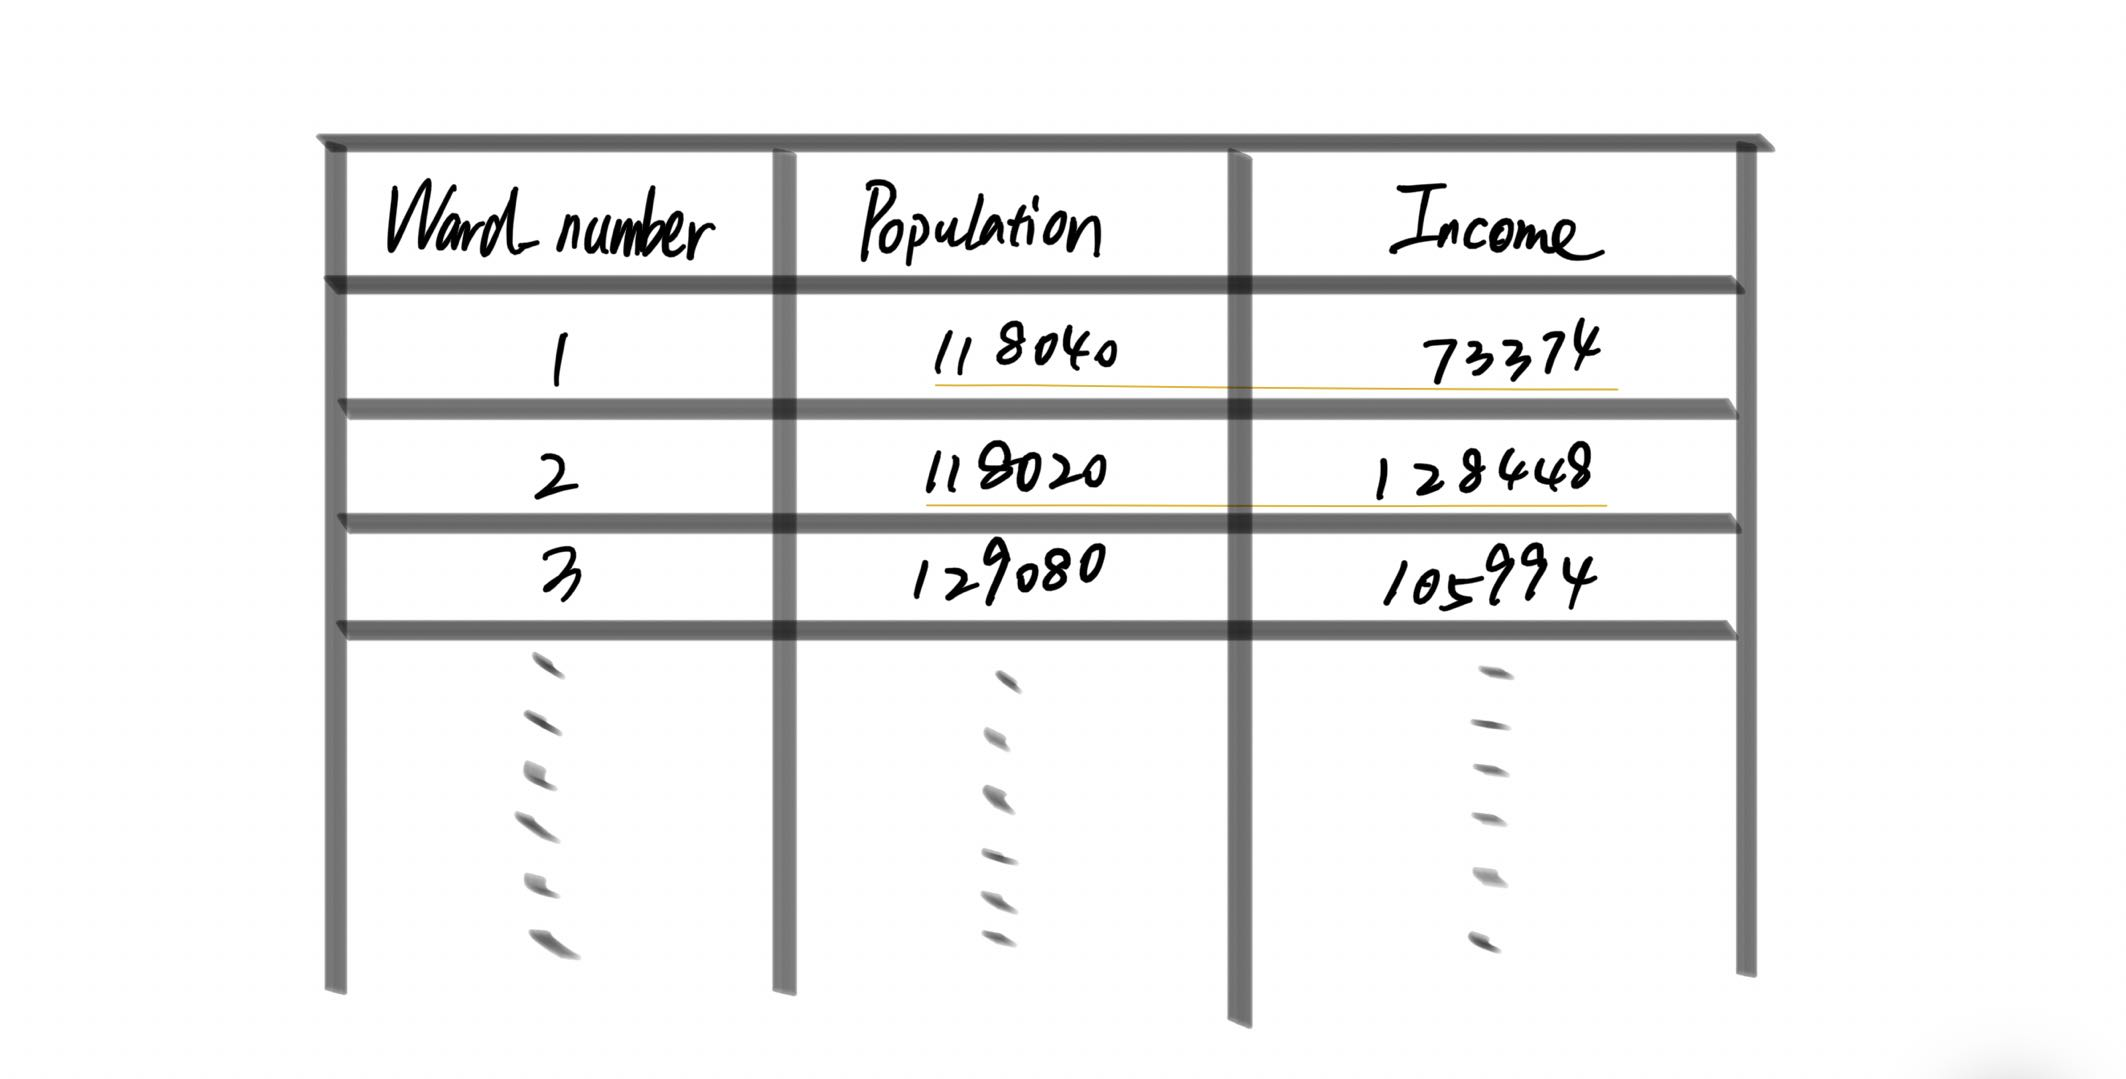 Ward number Population Income
1 118040 73374
2 118020 128448
3 129080 105994